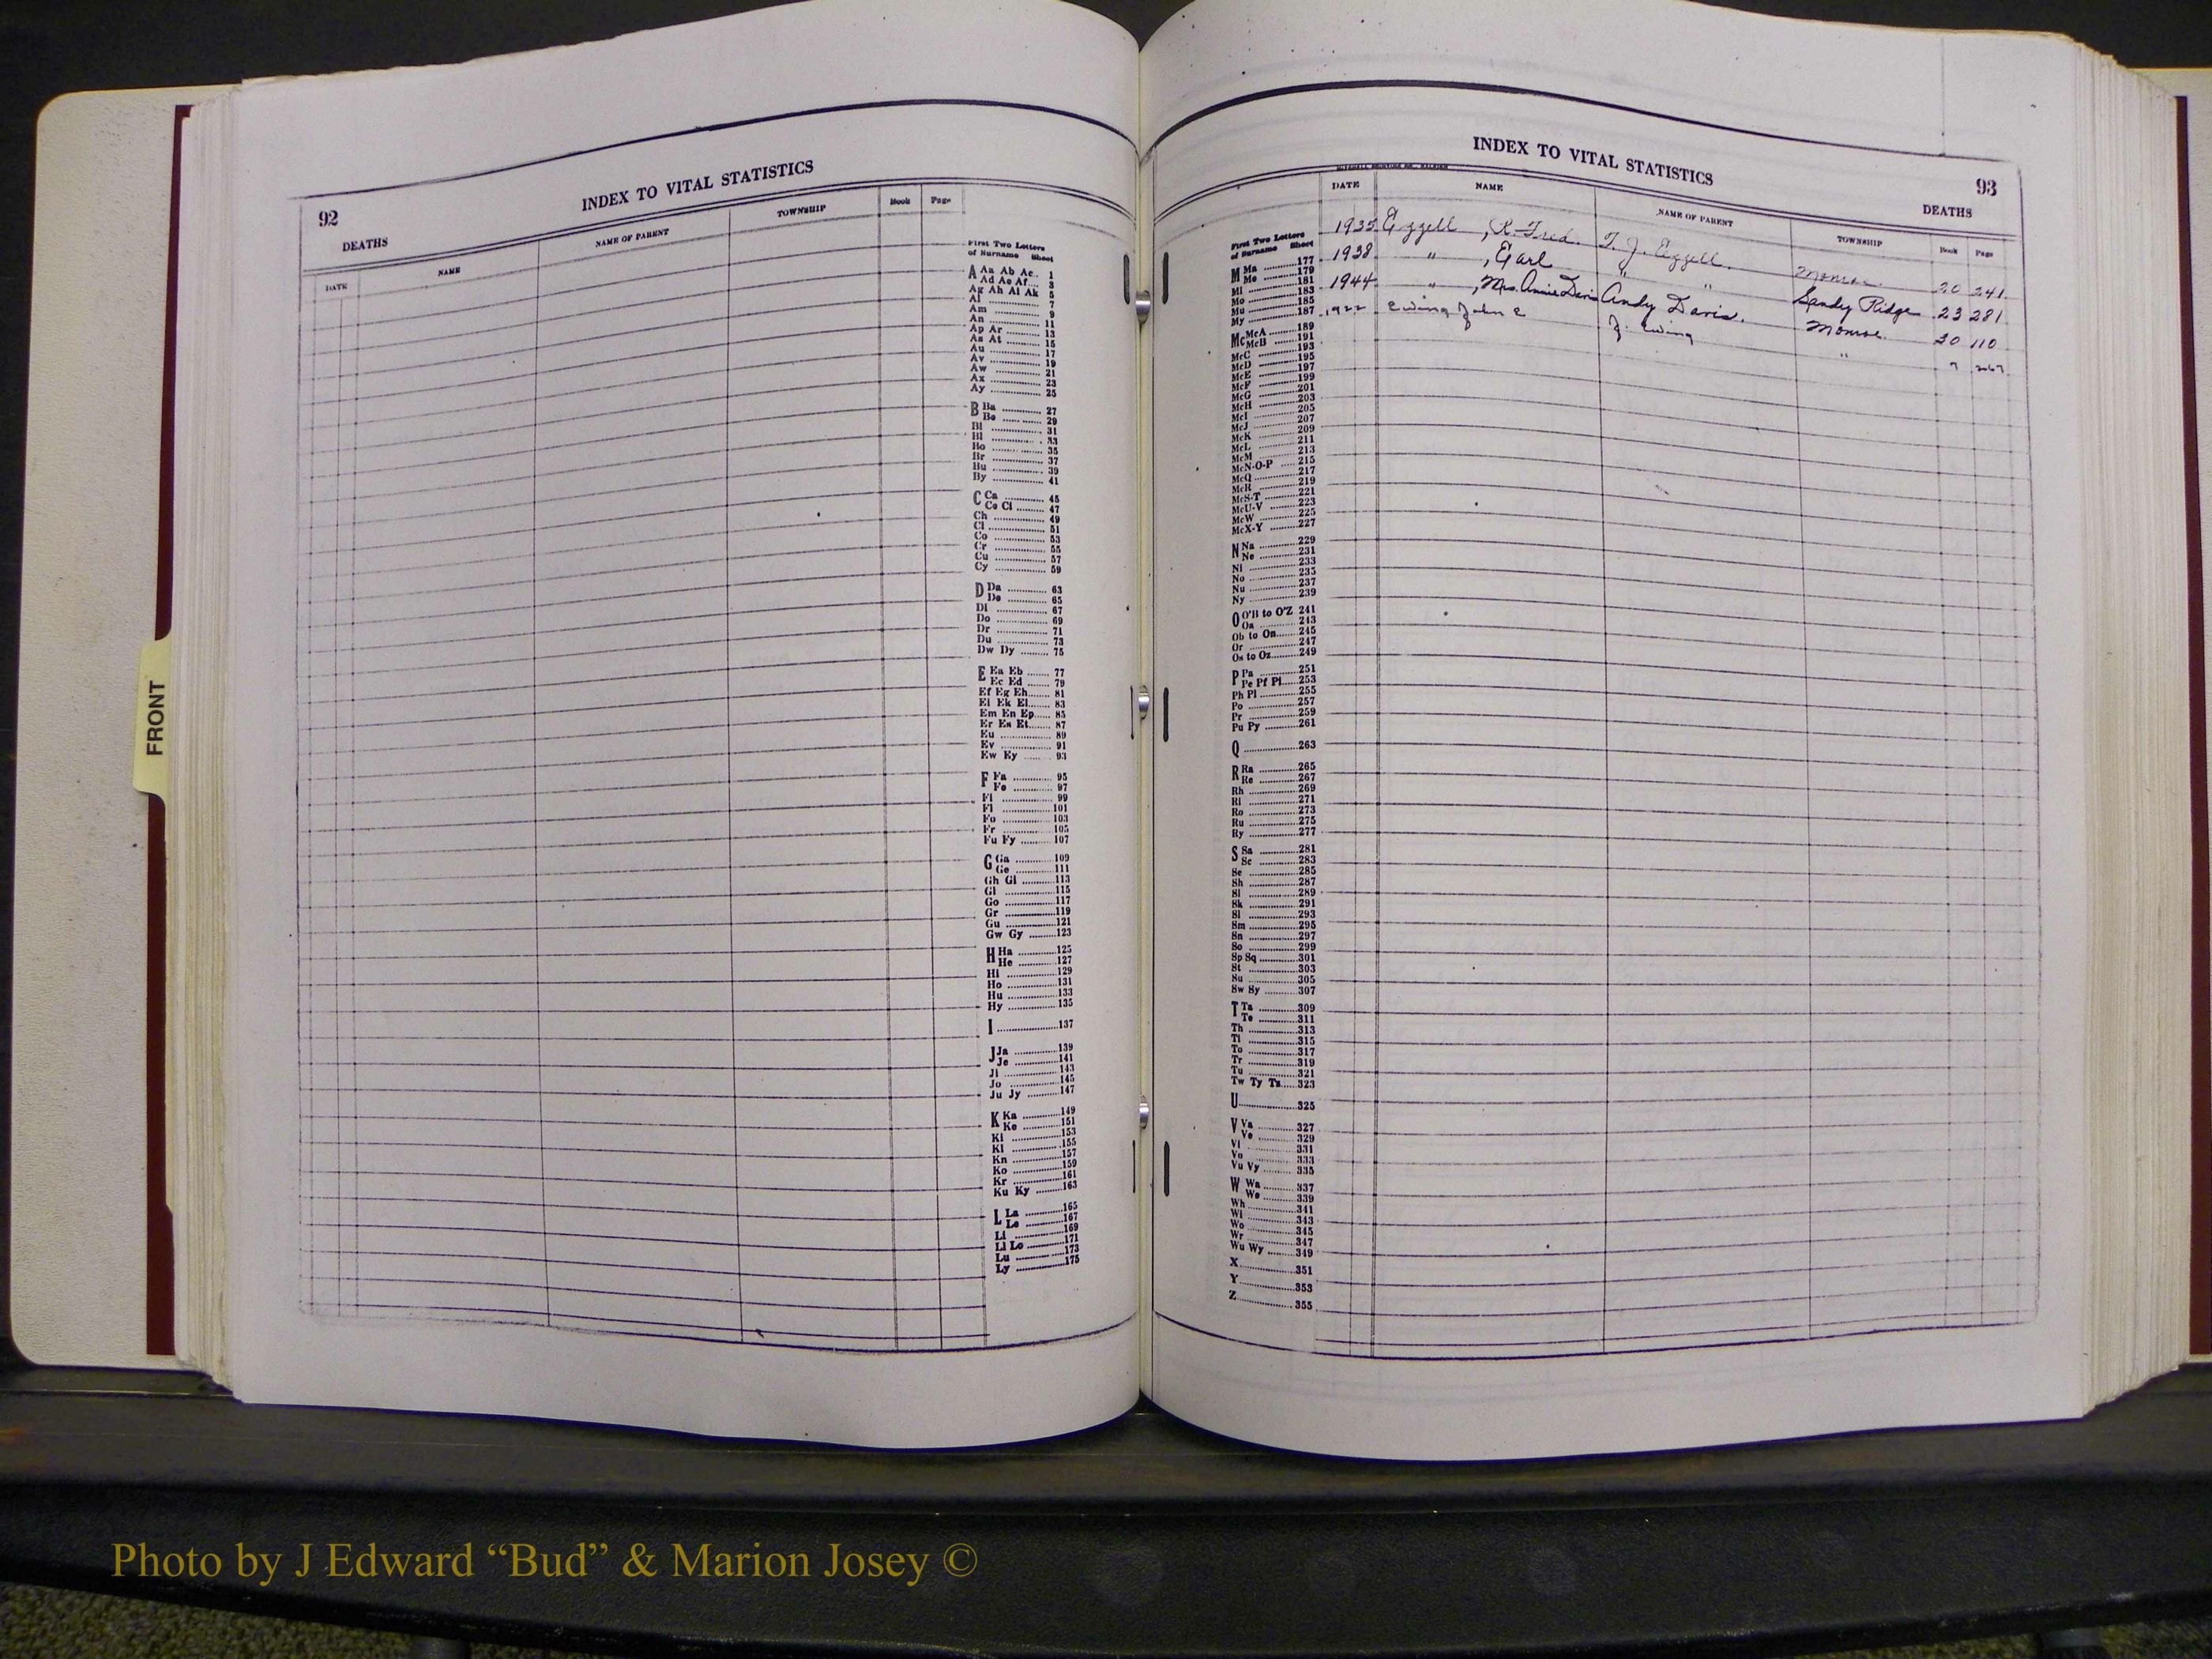 92
INDEX TO VITAL STATISTICS
DEATHS
DATE NAME NAME OF PARENT TOWNSHIP Book Page
First Two Letters
of Surname Sheet
A Aa Ab Ac.. 1
Ad Ae Af... 3
Ag Ah Ai Ak 5
Al .......... 7
Am .......... 9
An .......... 11
Ap Ar .......... 13
As At .......... 15
Au .......... 17
Av .......... 19
Aw .......... 21
Ax .......... 23
Ay .......... 25
B Ba .......... 27
Be .......... 29
Bi .......... 31
Bl .......... 33
Bo .......... 35
Br .......... 37
Bu .......... 39
By .......... 41
C Ca .......... 45
Ce Ci .......... 47
Ch .......... 49
Cl .......... 51
Co .......... 53
Cr .......... 55
Cu .......... 57
Cy .......... 59
D Da .......... 63
De .......... 65
Di .......... 67
Do .......... 69
Dr .......... 71
Du .......... 73
Dw Dy .......... 75
E Ea Eb .......... 77
Ec Ed .......... 79
Ef Eg Eh........ 81
Ei Ek El........ 83
Em En Ep..... 85
Er Es Et........ 87
Eu .......... 89
Ev .......... 91
Ew Ey .......... 93
F Fa .......... 95
Fe .......... 97
Fi .......... 99
Fl .......... 101
Fo .......... 103
Fr .......... 105
Fu Fy .......... 107
G Ga .......... 109
Ge .......... 111
Gh Gi .......... 113
Gl .......... 115
Go .......... 117
Gr .......... 119
Gu .......... 121
Gw Gy .......... 123
H Ha .......... 125
He .......... 127
Hi .......... 129
Ho .......... 131
Hu .......... 133
Hy .......... 135
I .......... 137
J Ja .......... 139
Je .......... 141
Ji .......... 143
Jo .......... 145
Ju Jy .......... 147
K Ka .......... 149
Ke .......... 151
Ki .......... 153
Kl .......... 155
Kn .......... 157
Ko .......... 159
Kr .......... 161
Ku Ky .......... 163
L La .......... 165
Le .......... 167
Li .......... 169
Ll Lo .......... 171
Lu .......... 173
Ly .......... 175
INDEX TO VITAL STATISTICS
93
DEATHS
DATE NAME NAME OF PARENT TOWNSHIP Book Page
1935 Ezzell , R. Fred. T. J. Ezzell. Monroe. 20 241
1938 " , Earl " " Sandy Ridge 23 281
1944 " , Mrs. Annie Davis Andy Davis. Monroe. 30 110
1922 Ewing John E J. Ewing " 7 267
First Two Letters
of Surname Sheet
M Ma .......... 177
Me .......... 179
Mi .......... 181
Mo .......... 183
Mu .......... 185
My .......... 187
Mc McA .......... 189
McB .......... 191
McC .......... 193
McD .......... 195
McE .......... 197
McF .......... 199
McG .......... 201
McH .......... 203
McI .......... 205
McJ .......... 207
McK .......... 209
McL .......... 211
McM .......... 213
McN-O-P .......... 215
McQ .......... 217
McR .......... 219
McS-T .......... 221
McU-V .......... 223
McW .......... 225
McX-Y .......... 227
N Na .......... 229
Ne .......... 231
Ni .......... 233
No .......... 235
Nu .......... 237
Ny .......... 239
O O'B to O'Z 241
Oa .......... 243
Ob to On....... 245
Or .......... 247
Os to Oz....... 249
P Pa .......... 251
Pe Pf Pi..... 253
Ph Pl .......... 255
Po .......... 257
Pr .......... 259
Pu Py .......... 261
Q .......... 263
R Ra .......... 265
Re .......... 267
Rh .......... 269
Ri .......... 271
Ro .......... 273
Ru .......... 275
Ry .......... 277
S Sa .......... 281
Sc .......... 283
Se .......... 285
Sh .......... 287
Si .......... 289
Sk .......... 291
Sl .......... 293
Sm .......... 295
Sn .......... 297
So .......... 299
Sp Sq .......... 301
St .......... 303
Su .......... 305
Sw Sy .......... 307
T Ta .......... 309
Te .......... 311
Th .......... 313
Ti .......... 315
To .......... 317
Tr .......... 319
Tu .......... 321
Tw Ty Tz..... 323
U .......... 325
V Va .......... 327
Ve .......... 329
Vi .......... 331
Vo .......... 333
Vu Vy .......... 335
W Wa .......... 337
We .......... 339
Wh .......... 341
Wi .......... 343
Wo .......... 345
Wr .......... 347
Wu Wy .......... 349
X .......... 351
Y .......... 353
Z .......... 355
FRONT
Photo by J Edward “Bud” & Marion Josey ©